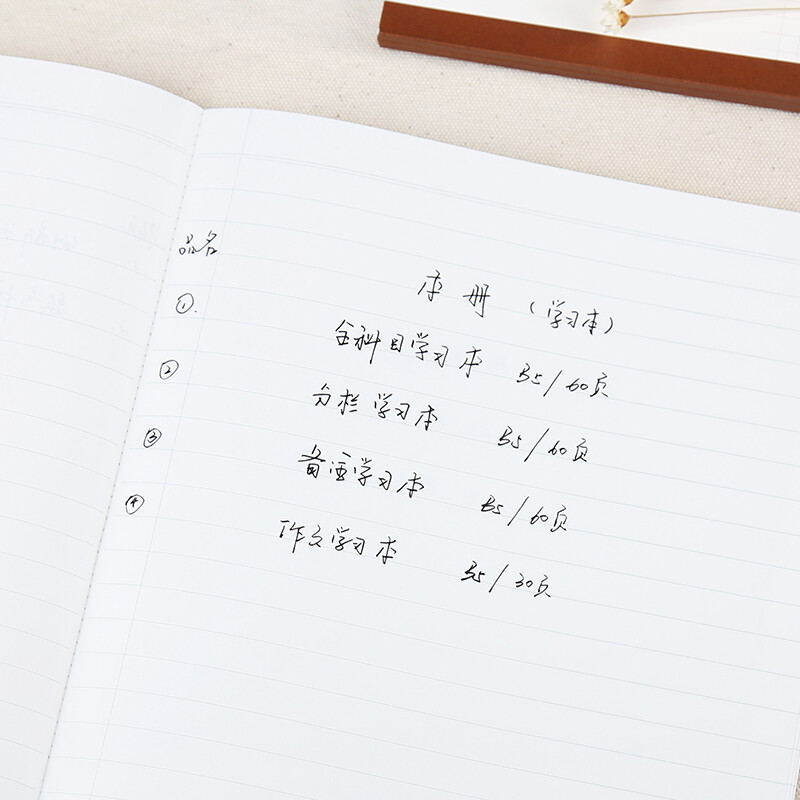 品名 本册（学习本）
①. 全科目学习本 B5/60页
② 分栏学习本 B5/60页
③ 备学习本 B5/60页
④ 作文学习本 B5/30页